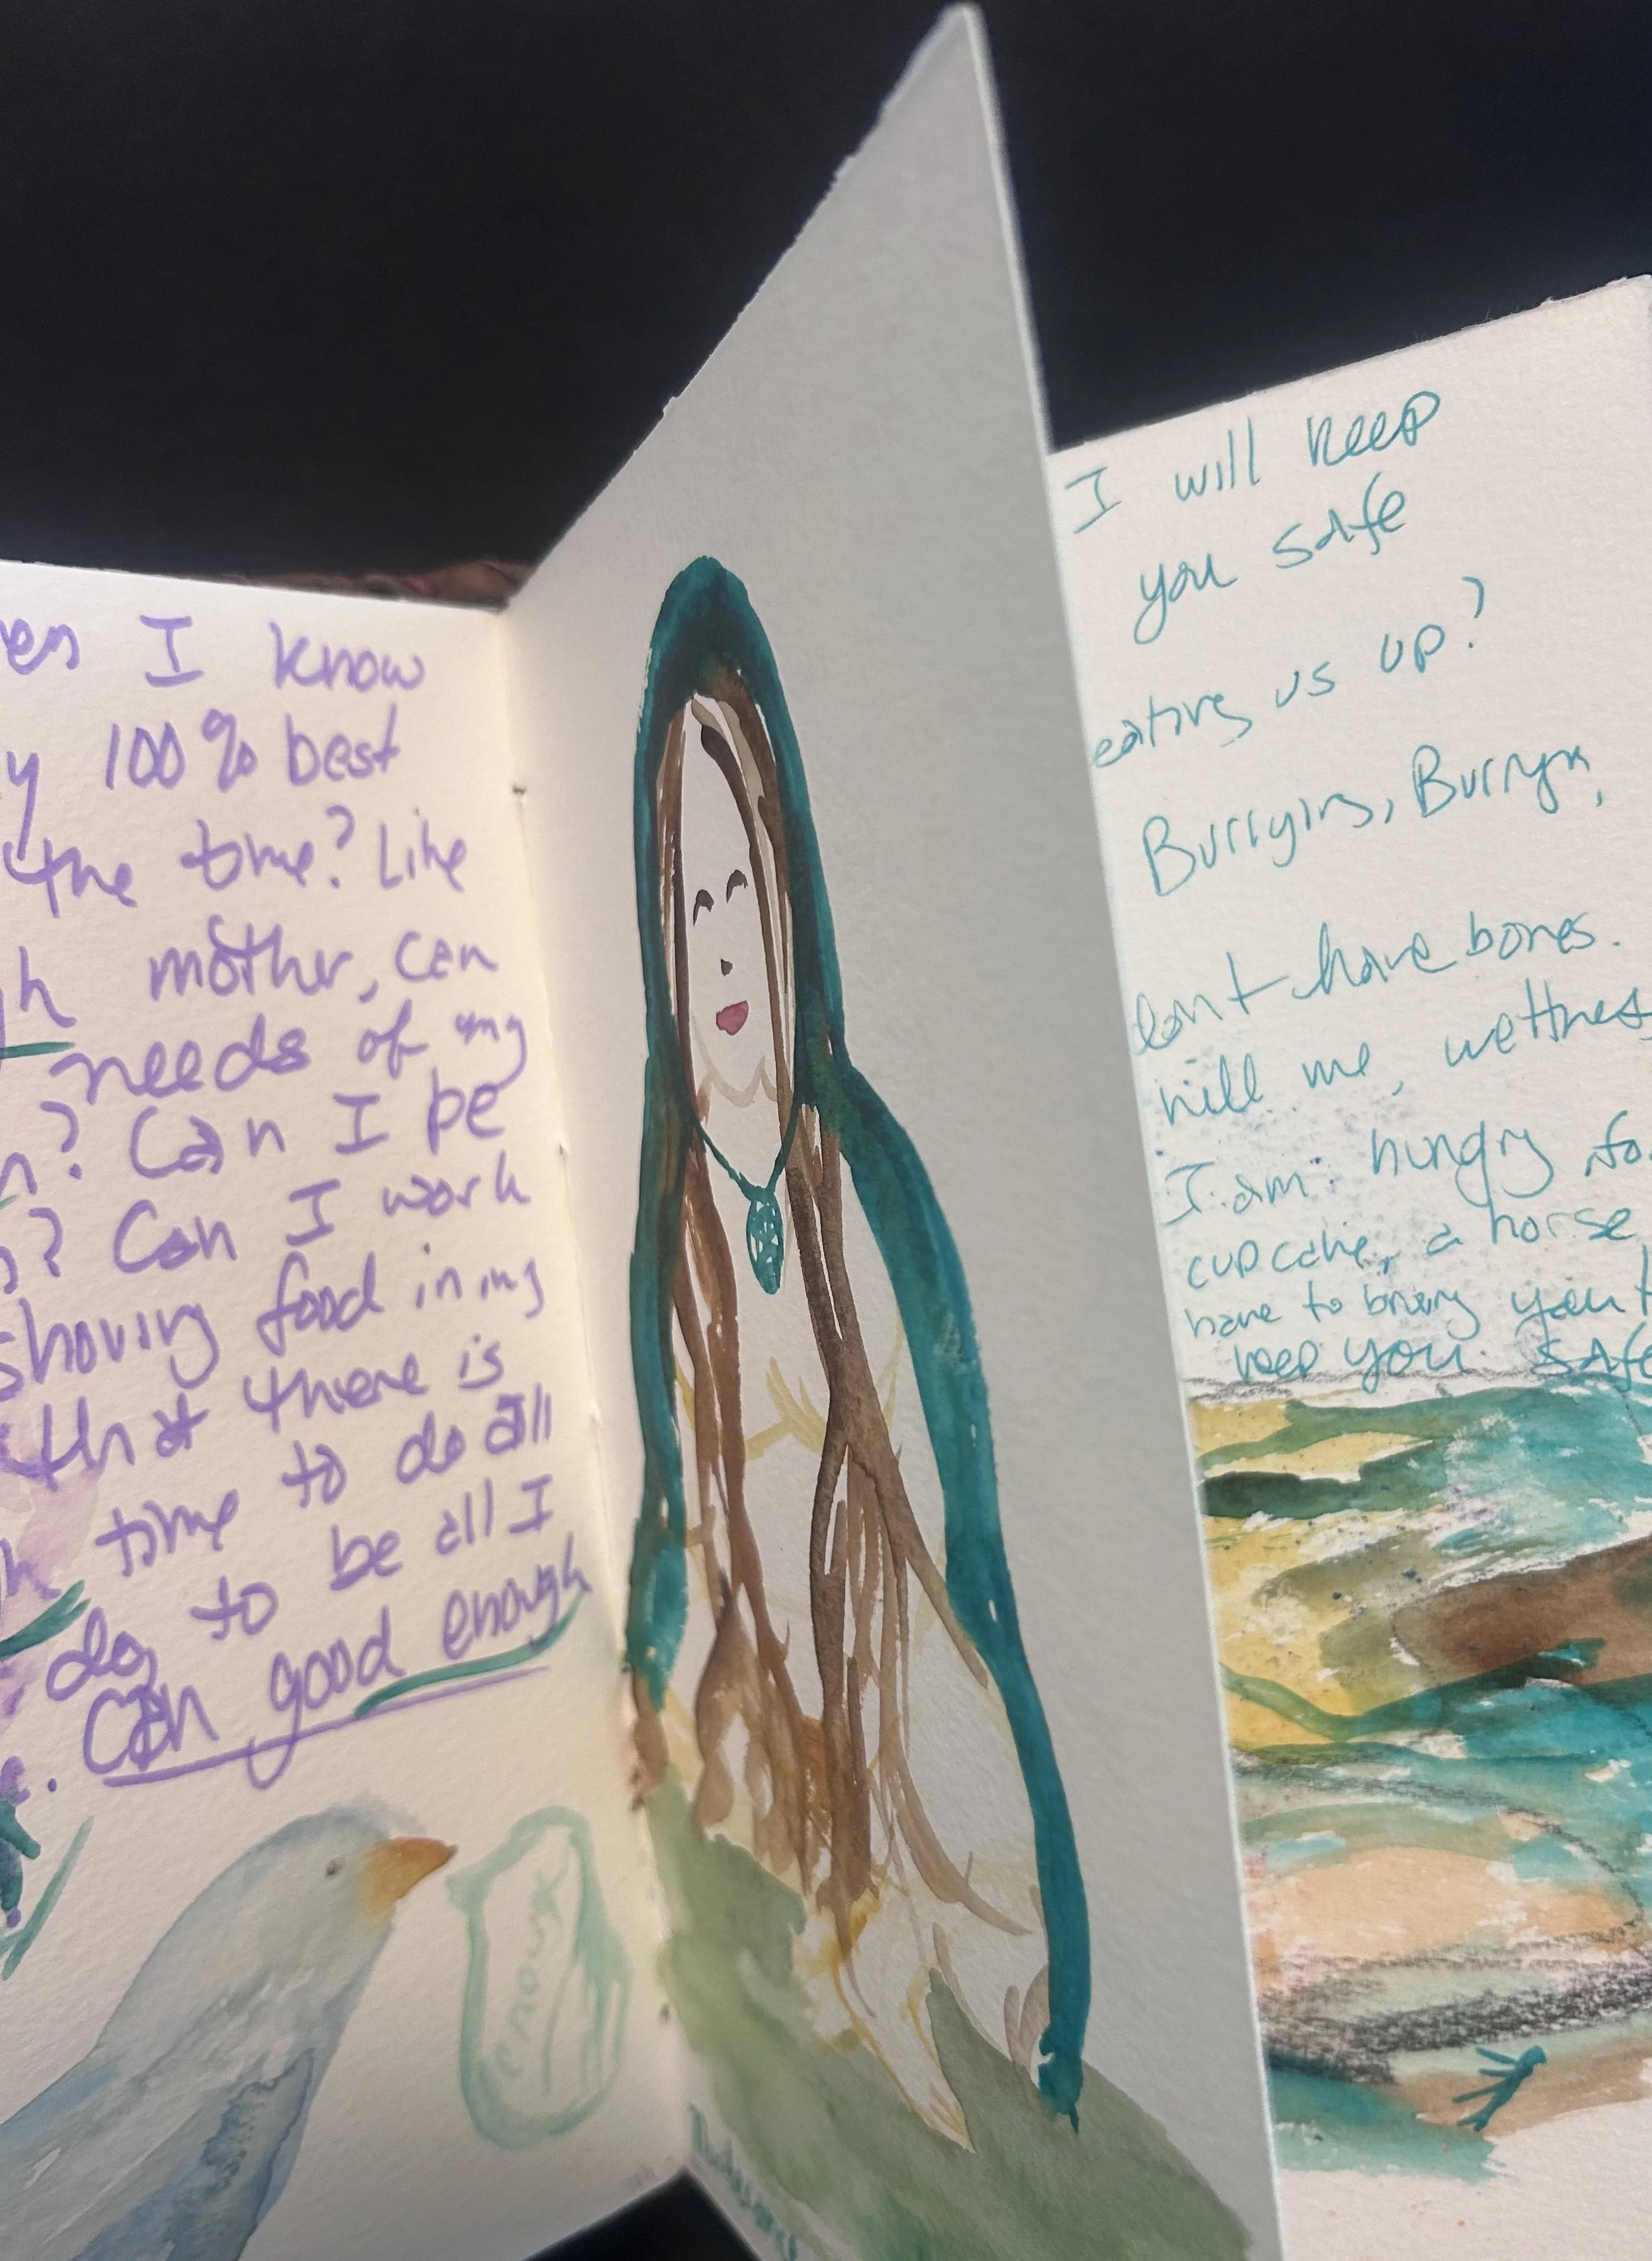 I know
y 100% best
the time? Like
h mother, can
needs of my
n? Can I be
? Can I work
shoving food in my
that there is
time to do all
do, to be all I
. Can good enough
enough
I will keep
you safe
eating us up?
Burrying, Burryn,
don't have bones.
kill me, wettness
I am hungry fo
cupcake, a horse
have to bring you t
keep you safe